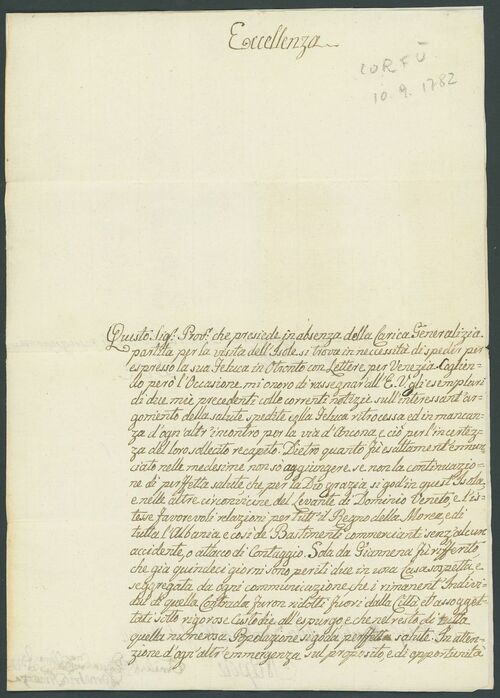 Eccellenza
CORFÙ
10. 9. 1782
Questo Sigr. Provr. che presiede in absenza della Carica Generalizia
partita per la visita dell'Isole si trova in necessità di spedir per
espresso la sua Feluca in Otronto con Lettere per Venezia. Coglien-
do però l'Occasione, mi onoro di rassegnar all'E.V. gli esemplari
di due mie precedenti colle correnti notizie sull'interessant'ar-
gomento della salute, spedite colla Feluca ritrocessa ed in mancan-
za d'ogn'altr'incontro per la via d'Ancona, e ciò per l'incertez-
za del loro sollecito recapito. Dietro quanto fù esattament'enun-
ciato nelle medesime non sò aggiungere, se non la continuazio-
ne di perffetta salute che per la Dio grazia si god'in quest'Isola,
e nelle altre circonvicine del Levante di Dominio Veneto, e l'i-
stesse favorevoli relazioni per tutt'il Regno della Morea, e di
tutta l'Albania, e così de' Bastimenti commercianti senz'alcun
accidente, o attacco di Contaggio. Solo da Giannena fù rifferito
che già quindeci giorni sono periti due in una Casa sospetta, e
segregata da ogni communicazione che i rimanent'Indivi-
dui di quella Contrada furon ridotti fuori dalla Città, et assogget-
tati sotto rigorose Custodie all'espurgo, e che nel resto di tutta
quella numerosa Popolazione si goda perffetta salute. In atten-
zione d'ogn'altr'emmergenza sul proposito, e di opportunità